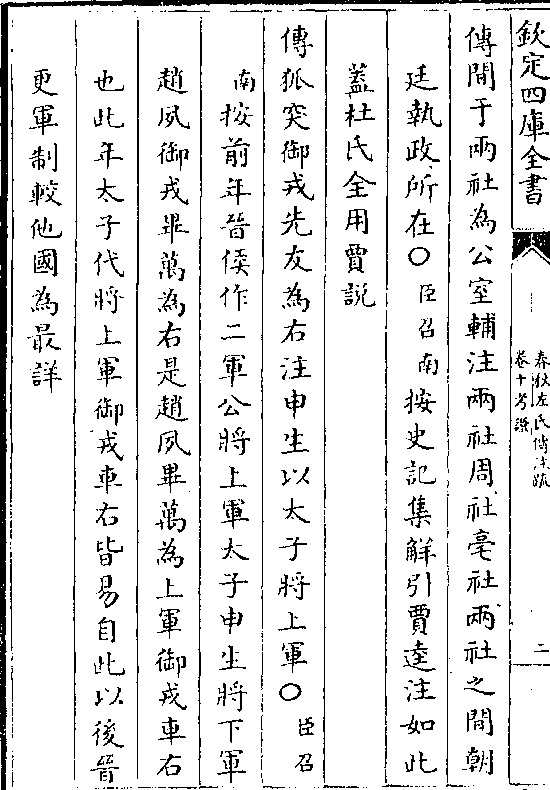 欽定四庫全書
春秋左氏傳注疏
卷十考證
二
傳間于兩社為公室輔注兩社周社亳社兩社之間朝
廷執政所在○臣召南按史記集解引賈逵注如此
蓋杜氏全用賈説
傳狐突御戎先友為右注申生以太子將上軍○臣召
南按前年晉侯作二軍公將上軍太子申生將下軍
趙夙御戎畢萬為右是趙夙畢萬為上軍御戎車右
也此年太子代將上軍御戎車右皆易自此以後晉
更軍制較他國為最詳